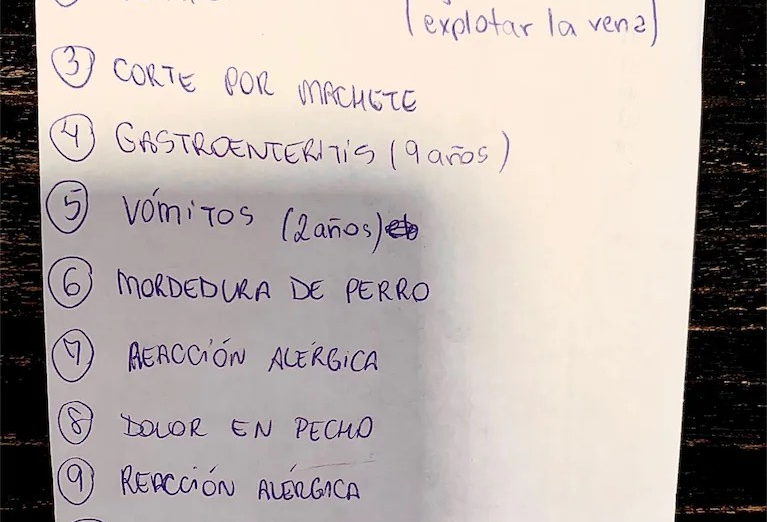 (explotar la vena)
3 CORTE POR MACHETE
4 GASTROENTERITIS (9 años)
5 VÓMITOS (2 años)
6 MORDEDURA DE PERRO
7 REACCIÓN ALÉRGICA
8 DOLOR EN PECHO
9 REACCIÓN ALÉRGICA